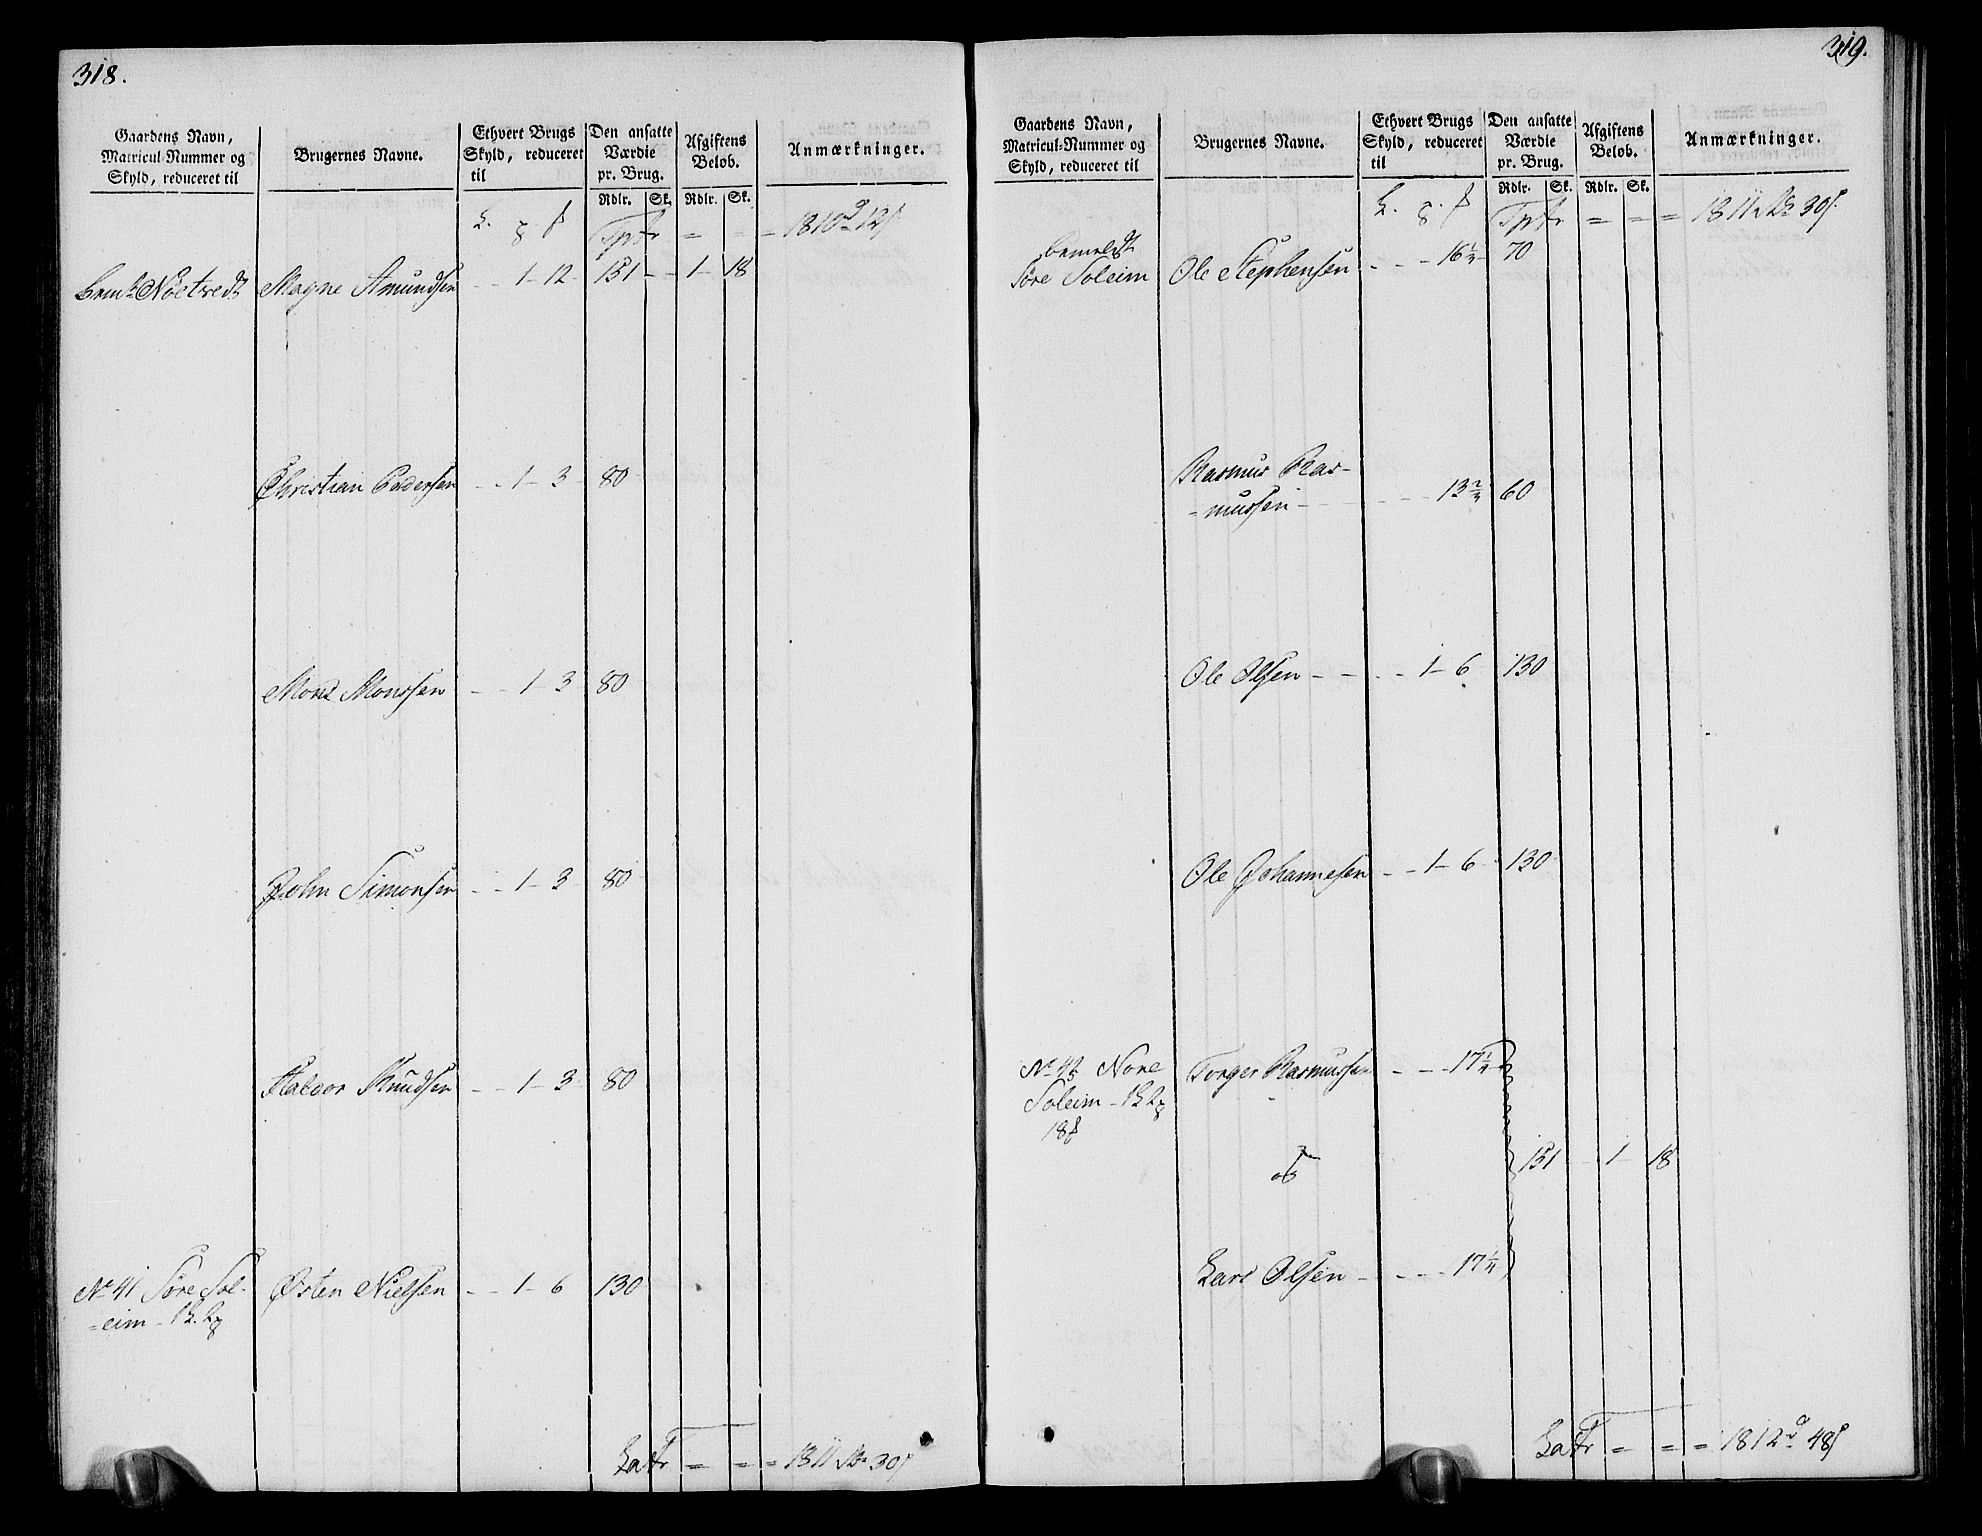 318.
Gaardens Navn,
Matricul-Nummer og
Skyld, reduceret til
Brugernes Navne.
Ethvert Brugs
Skyld, reduceret
til
Den ansatte
Værdie
pr. Brug.
Rdlr. Sk.
Afgiftens
Beløb.
Rdlr. Sk.
Anmærkninger.
Tpfr = = = 1810 12
Magne Amundsen - - 1 - 12 - 151 - - 1 - 18
Christian Pedersen - - 1 - 3 - 80
Mons Monssen - - 1 - 3 80
John Simonsen - - 1 - 3 80
Halvor Knudsen - - 1 - 3 80
No 41 Søre Sol-
=eim - 1
Østen Nielsen - - 1 - 6 130
Latr = = = 1811 30
319.
Gaardens Navn,
Matricul-Nummer og
Skyld, reduceret til
Brugernes Navne.
Ethvert Brugs
Skyld, reduceret
til
Den ansatte
Værdie
pr. Brug.
Rdlr. Sk.
Afgiftens
Beløb.
Rdlr. Sk.
Anmærkninger.
Tpfr = = = 1811 30
bemeldt
Søre Soleim Ole Stephensen - - - 16 70
Rasmus Ras-
=mussen - - - 13 60
Ole Olsen - - - - 1 - 6 130
Ole Johannesen - - 1 - 6 - 130
Nore Torger Rasmussen - - - 17 1/4
Soleim - 1
18
og 151 - 1 - 18
Lars Olsen - - - - 17 1/4
Latr = = = 1812 48